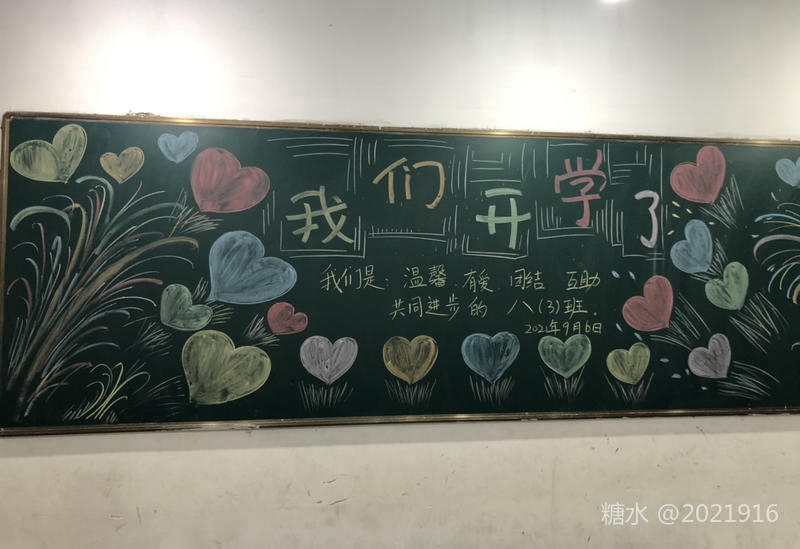 我们开学了
我们是：温馨 有爱 团结 互助
共同进步的 八(3)班.
2021年9月6日
糖水 @2021916